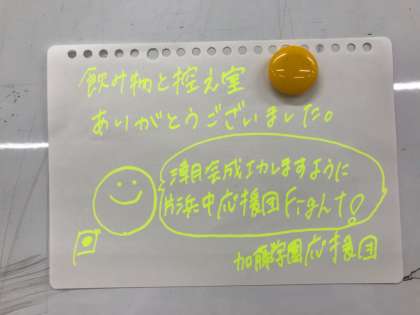 飲み物と控え室
ありがとうございました。
演目会成功しますように
片浜中応援団Fight!
加藤学園応援団